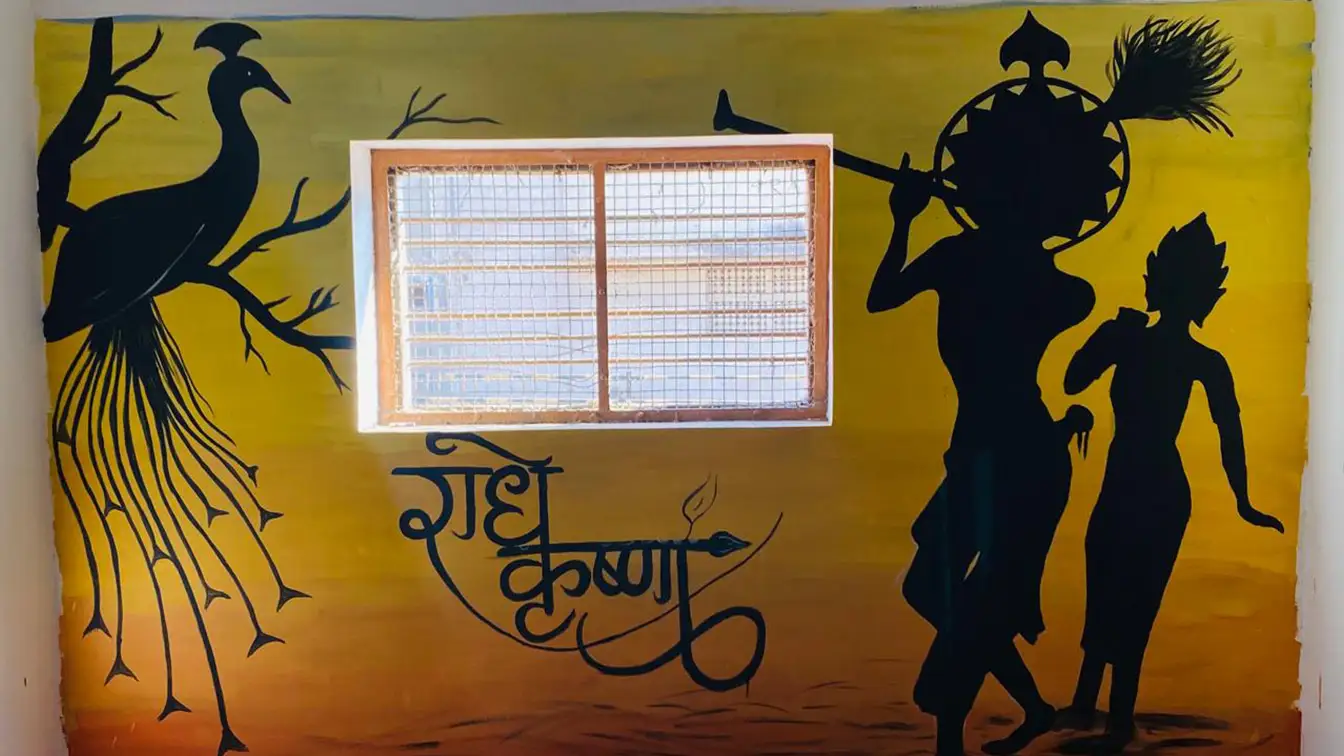 राधे
कृष्णा